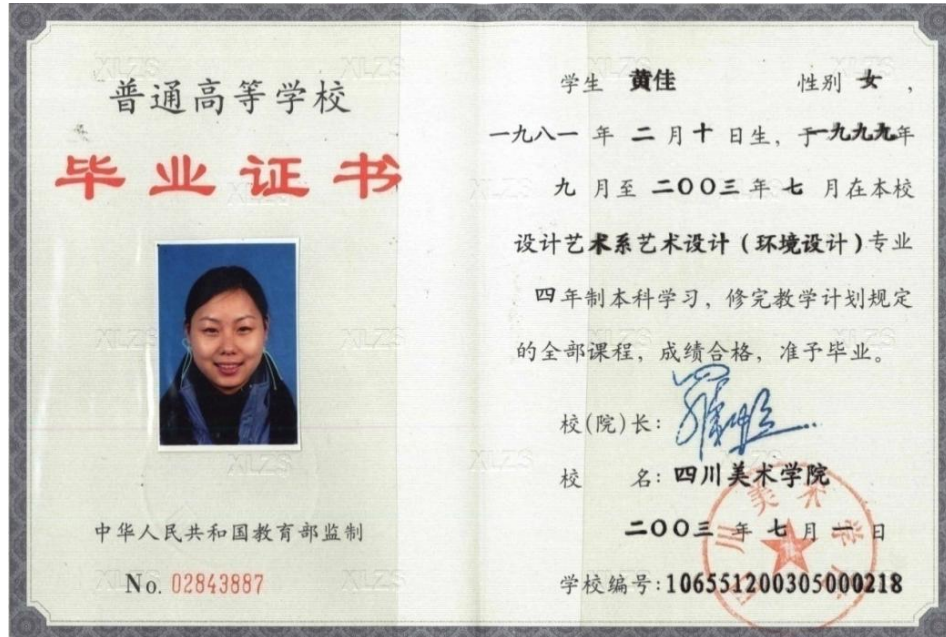 普通高等学校
毕业证书
中华人民共和国教育部监制
No. 02843887
学生 黄佳 性别 女，
一九八一 年 二 月 十 日生，于一九九九年
九 月至 二〇〇三 年 七 月在本校
设计艺术系艺术设计（环境设计）专业
四年制本科学习，修完教学计划规定
的全部课程，成绩合格，准予毕业。
校(院)长：
校 名：四川美术学院
二〇〇三 年 七 月 一 日
学校编号：106551200305000218
XLZS